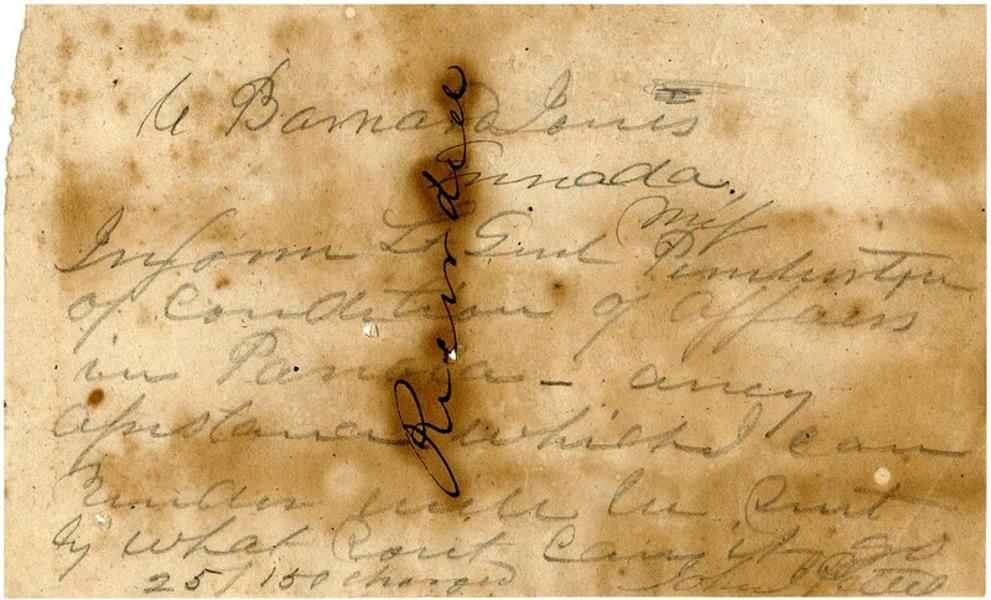 Barnard Jones
Miss
Inform Lt Genl Pemberton
of Condition of Affairs
in Panola — any
assistance which I can
render will be sent
By what rout can you go
25/150 charged John